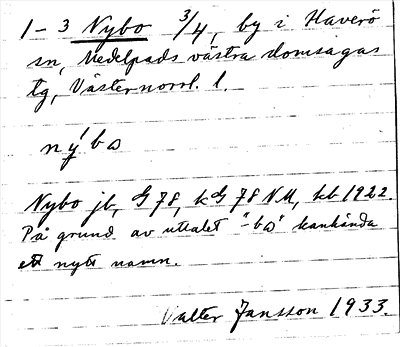 1-3 Nybo 3/4, by i Haverö
sn, Medelpads västra domsagas
tg, Västernorrl. l.
nýbω
Nybo jb, G 78, kG 78 NM, kb 1922.
På grund av uttalet "-bω" kanhända
ett nytt namn.
Valter Jansson 1933.